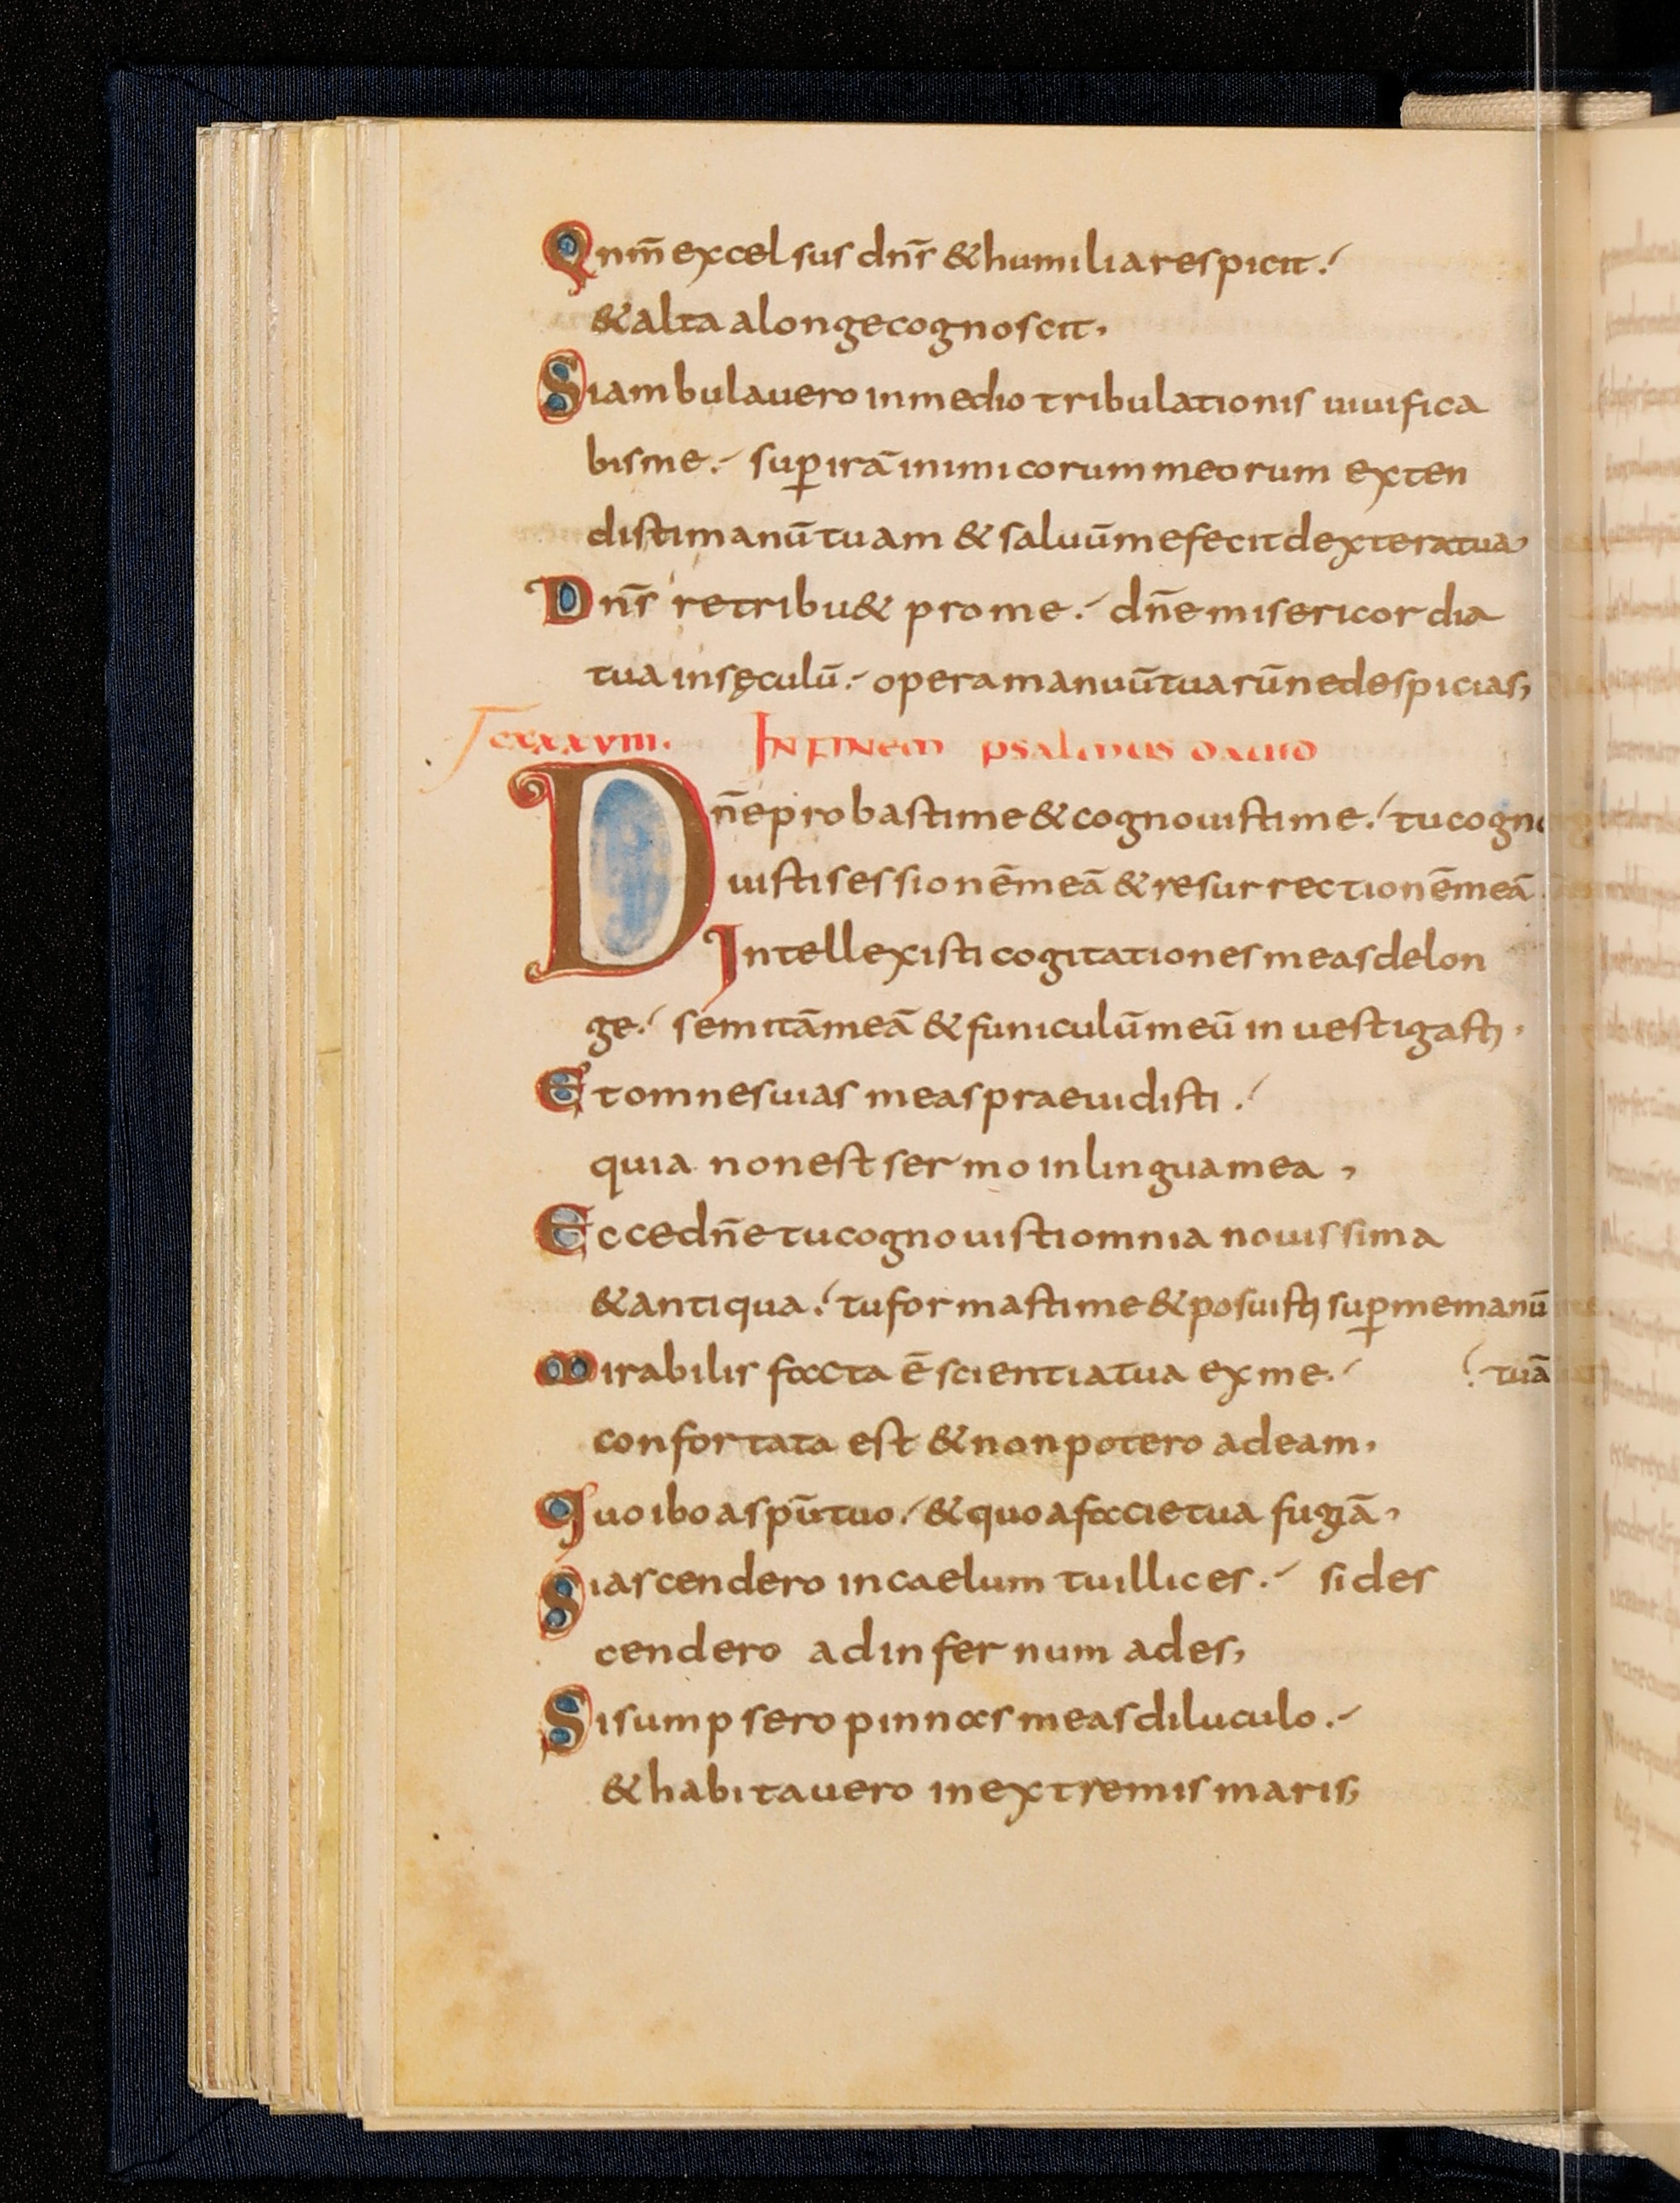 Qnm̄ excelsus dn̄s & humilia respicit.
& alta alonge cognoscit,
Si ambulavero in medio tribulationis uiuifica
bis me. sup̱ irā inimicorum meorum exten
disti manū tuam & saluū me fecit dextera tua
Dn̄s retribu& pro me. dn̄e misericordia
tua in sęculū. opera manuū tuarū ne despicias,
cxxxviii. In finem psalmus dauid
Dn̄e probasti me & cognouisti me. tu cogno
uisti sessionē meā & resurrectionē meā
Intellexisti cogitationes meas de lon
ge. semitā meā & funiculū meū inuestigasti,
Et omnes uias meas praeuidisti.
quia non est sermo in lingua mea,
Ecce dn̄e tu cognouisti omnia nouissima
& antiqua. tu formasti me & posuisti sup̱ me manū
Mirabilis facta ē scientia tua ex me. tuā
confortata est & non potero ad eam,
Quo ibo a sp̄u tuo. & quo a facie tua fugiā,
Si ascendero in caelum tu illic es. si des
cendero ad infernum ades,
Si sumpsero pinnas meas diluculo.
& habitauero in extremis maris,